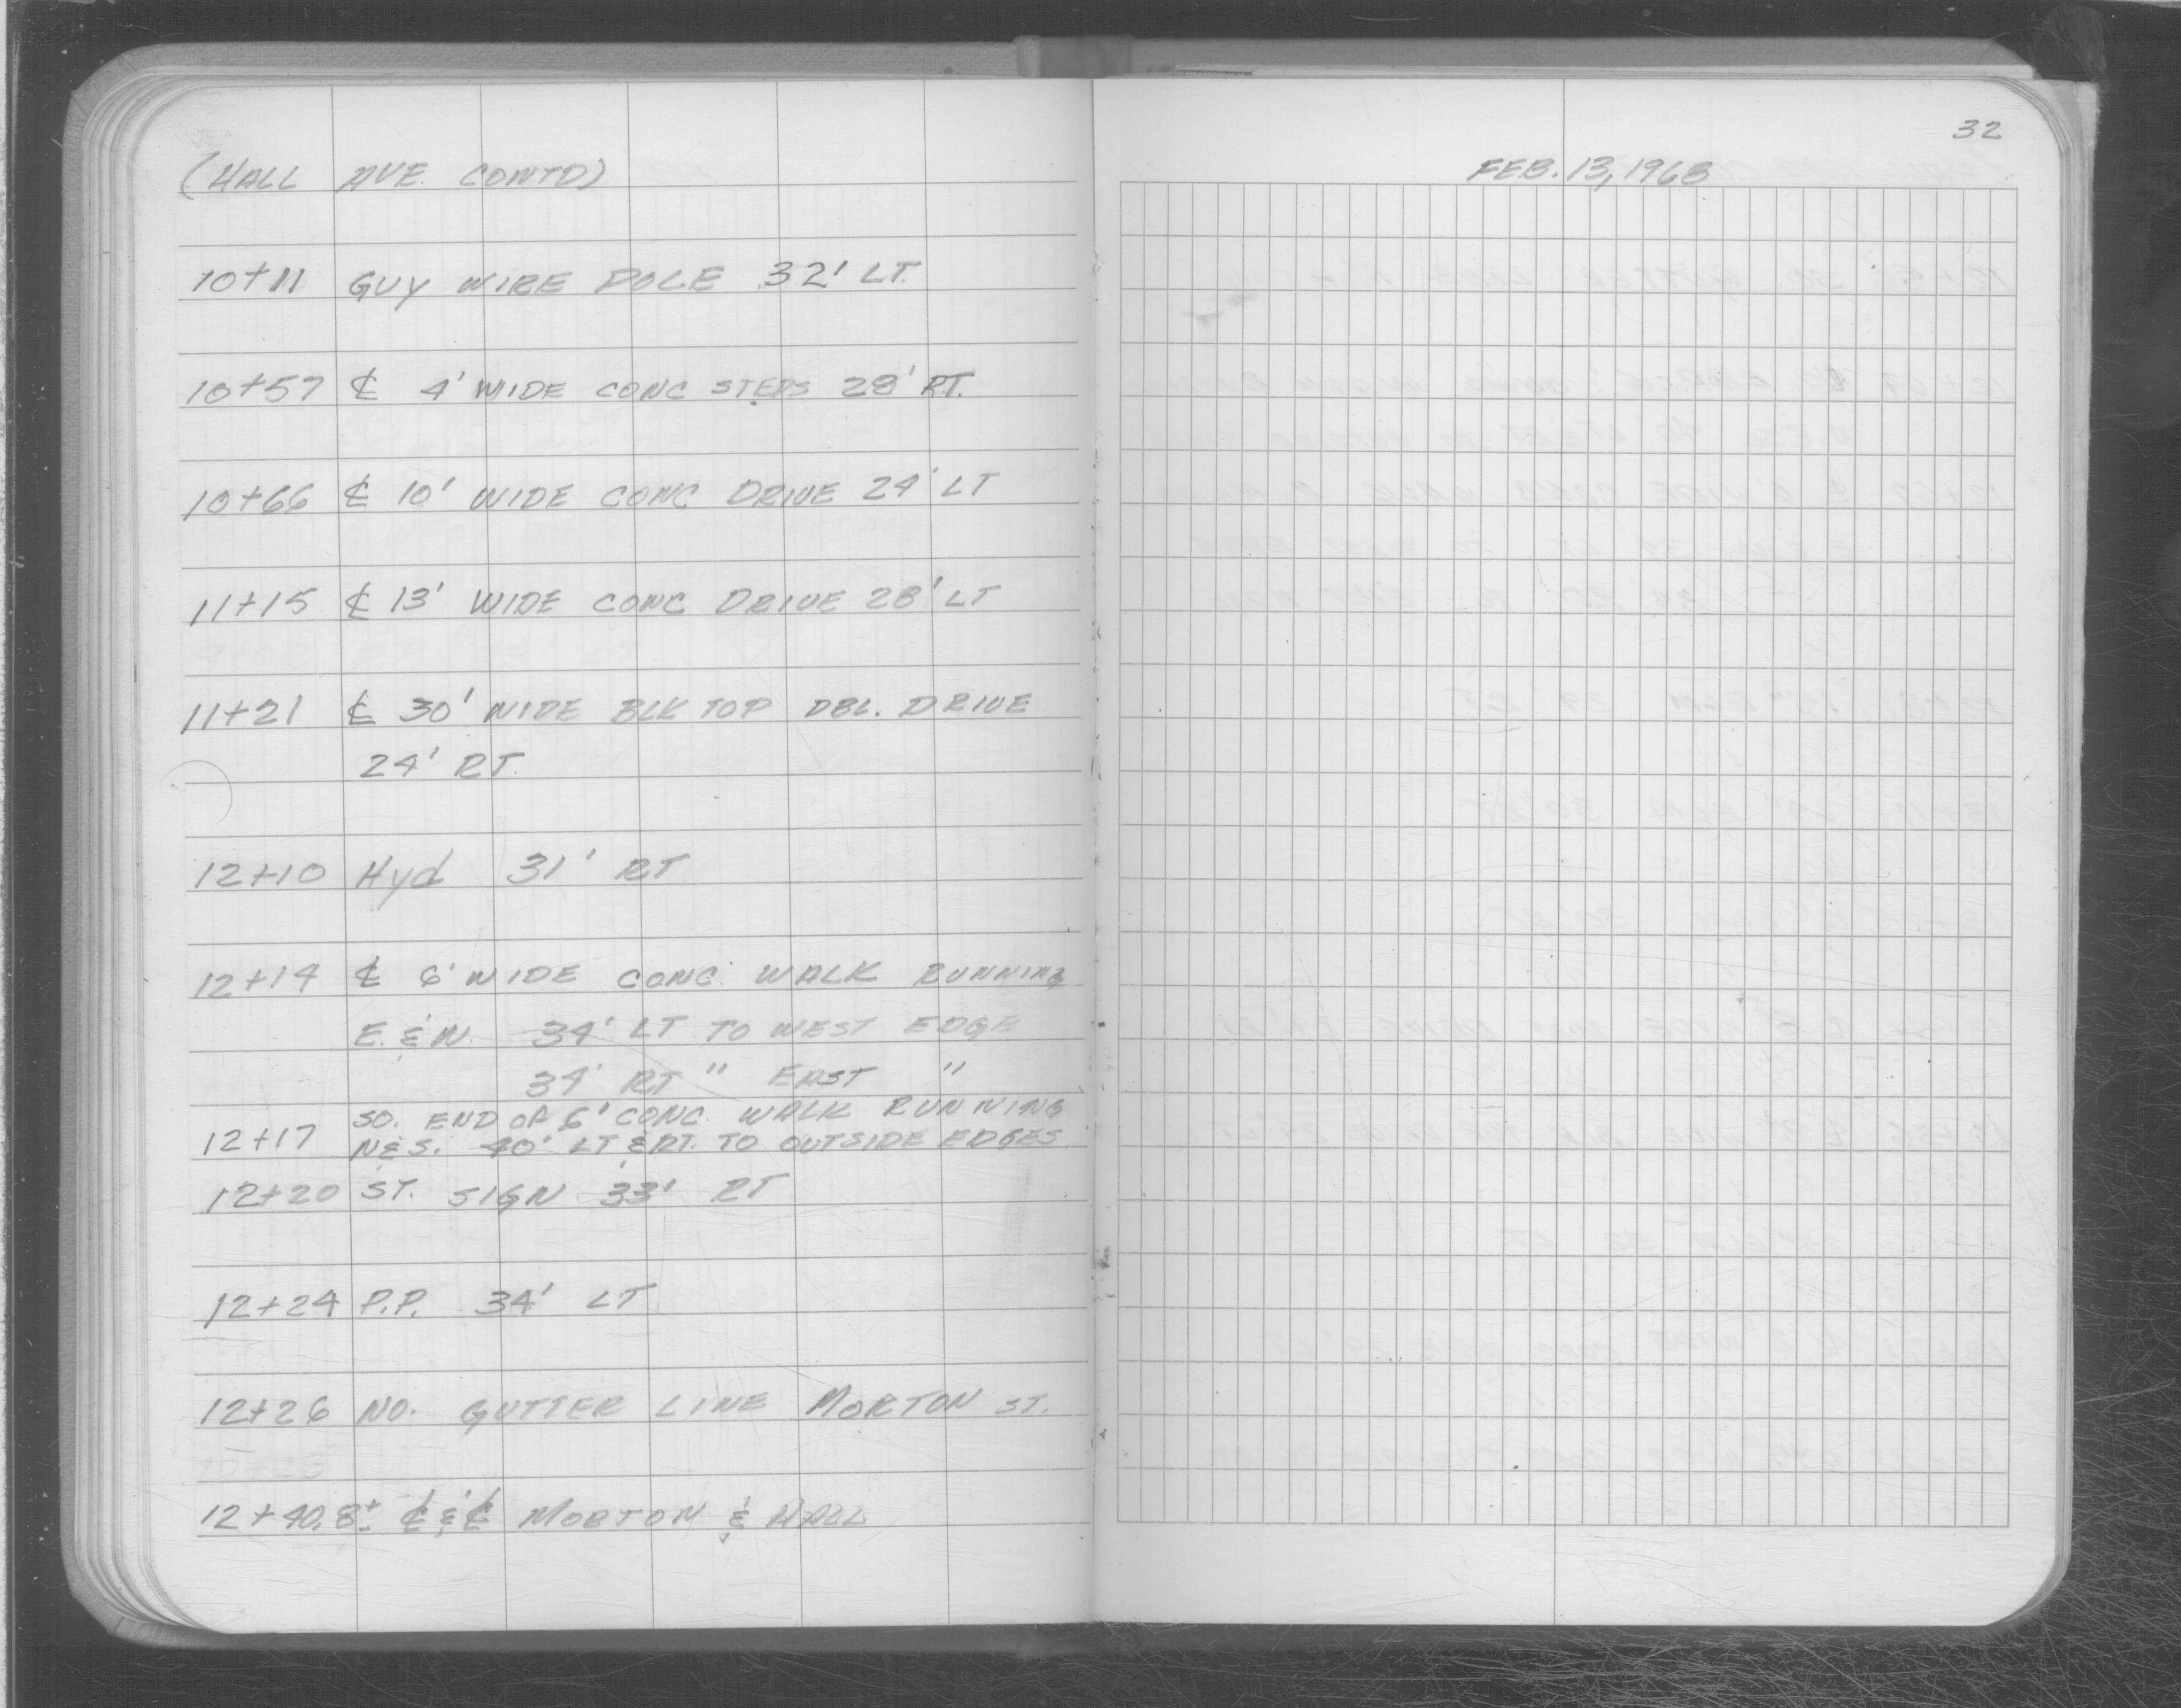 32
(HALL AVE. CONTD)
FEB. 13, 1968
10+11 GUY WIRE POLE 32' LT.
10+57 ℄ 4' WIDE CONC STEPS 28' RT.
10+66 ℄ 10' WIDE CONC DRIVE 24' LT
11+15 ℄ 13' WIDE CONC DRIVE 28' LT
11+21 ℄ 30' WIDE BLK TOP DBL. DRIVE
24' RT.
12+10 Hyd 31' RT
12+14 ℄ 6' WIDE CONC. WALK RUNNING
E. & W. 34' LT TO WEST EDGE
34' RT " EAST "
SO. END OF 6' CONC. WALK RUNNING
12+17 N&S. 40' LT & RT. TO OUTSIDE EDGES
12+20 ST. SIGN 33' RT
12+24 P.P. 34' LT
12+26 NO. GUTTER LINE MORTON ST.
12+40.8± ℄ & ℄ MORTON & HALL